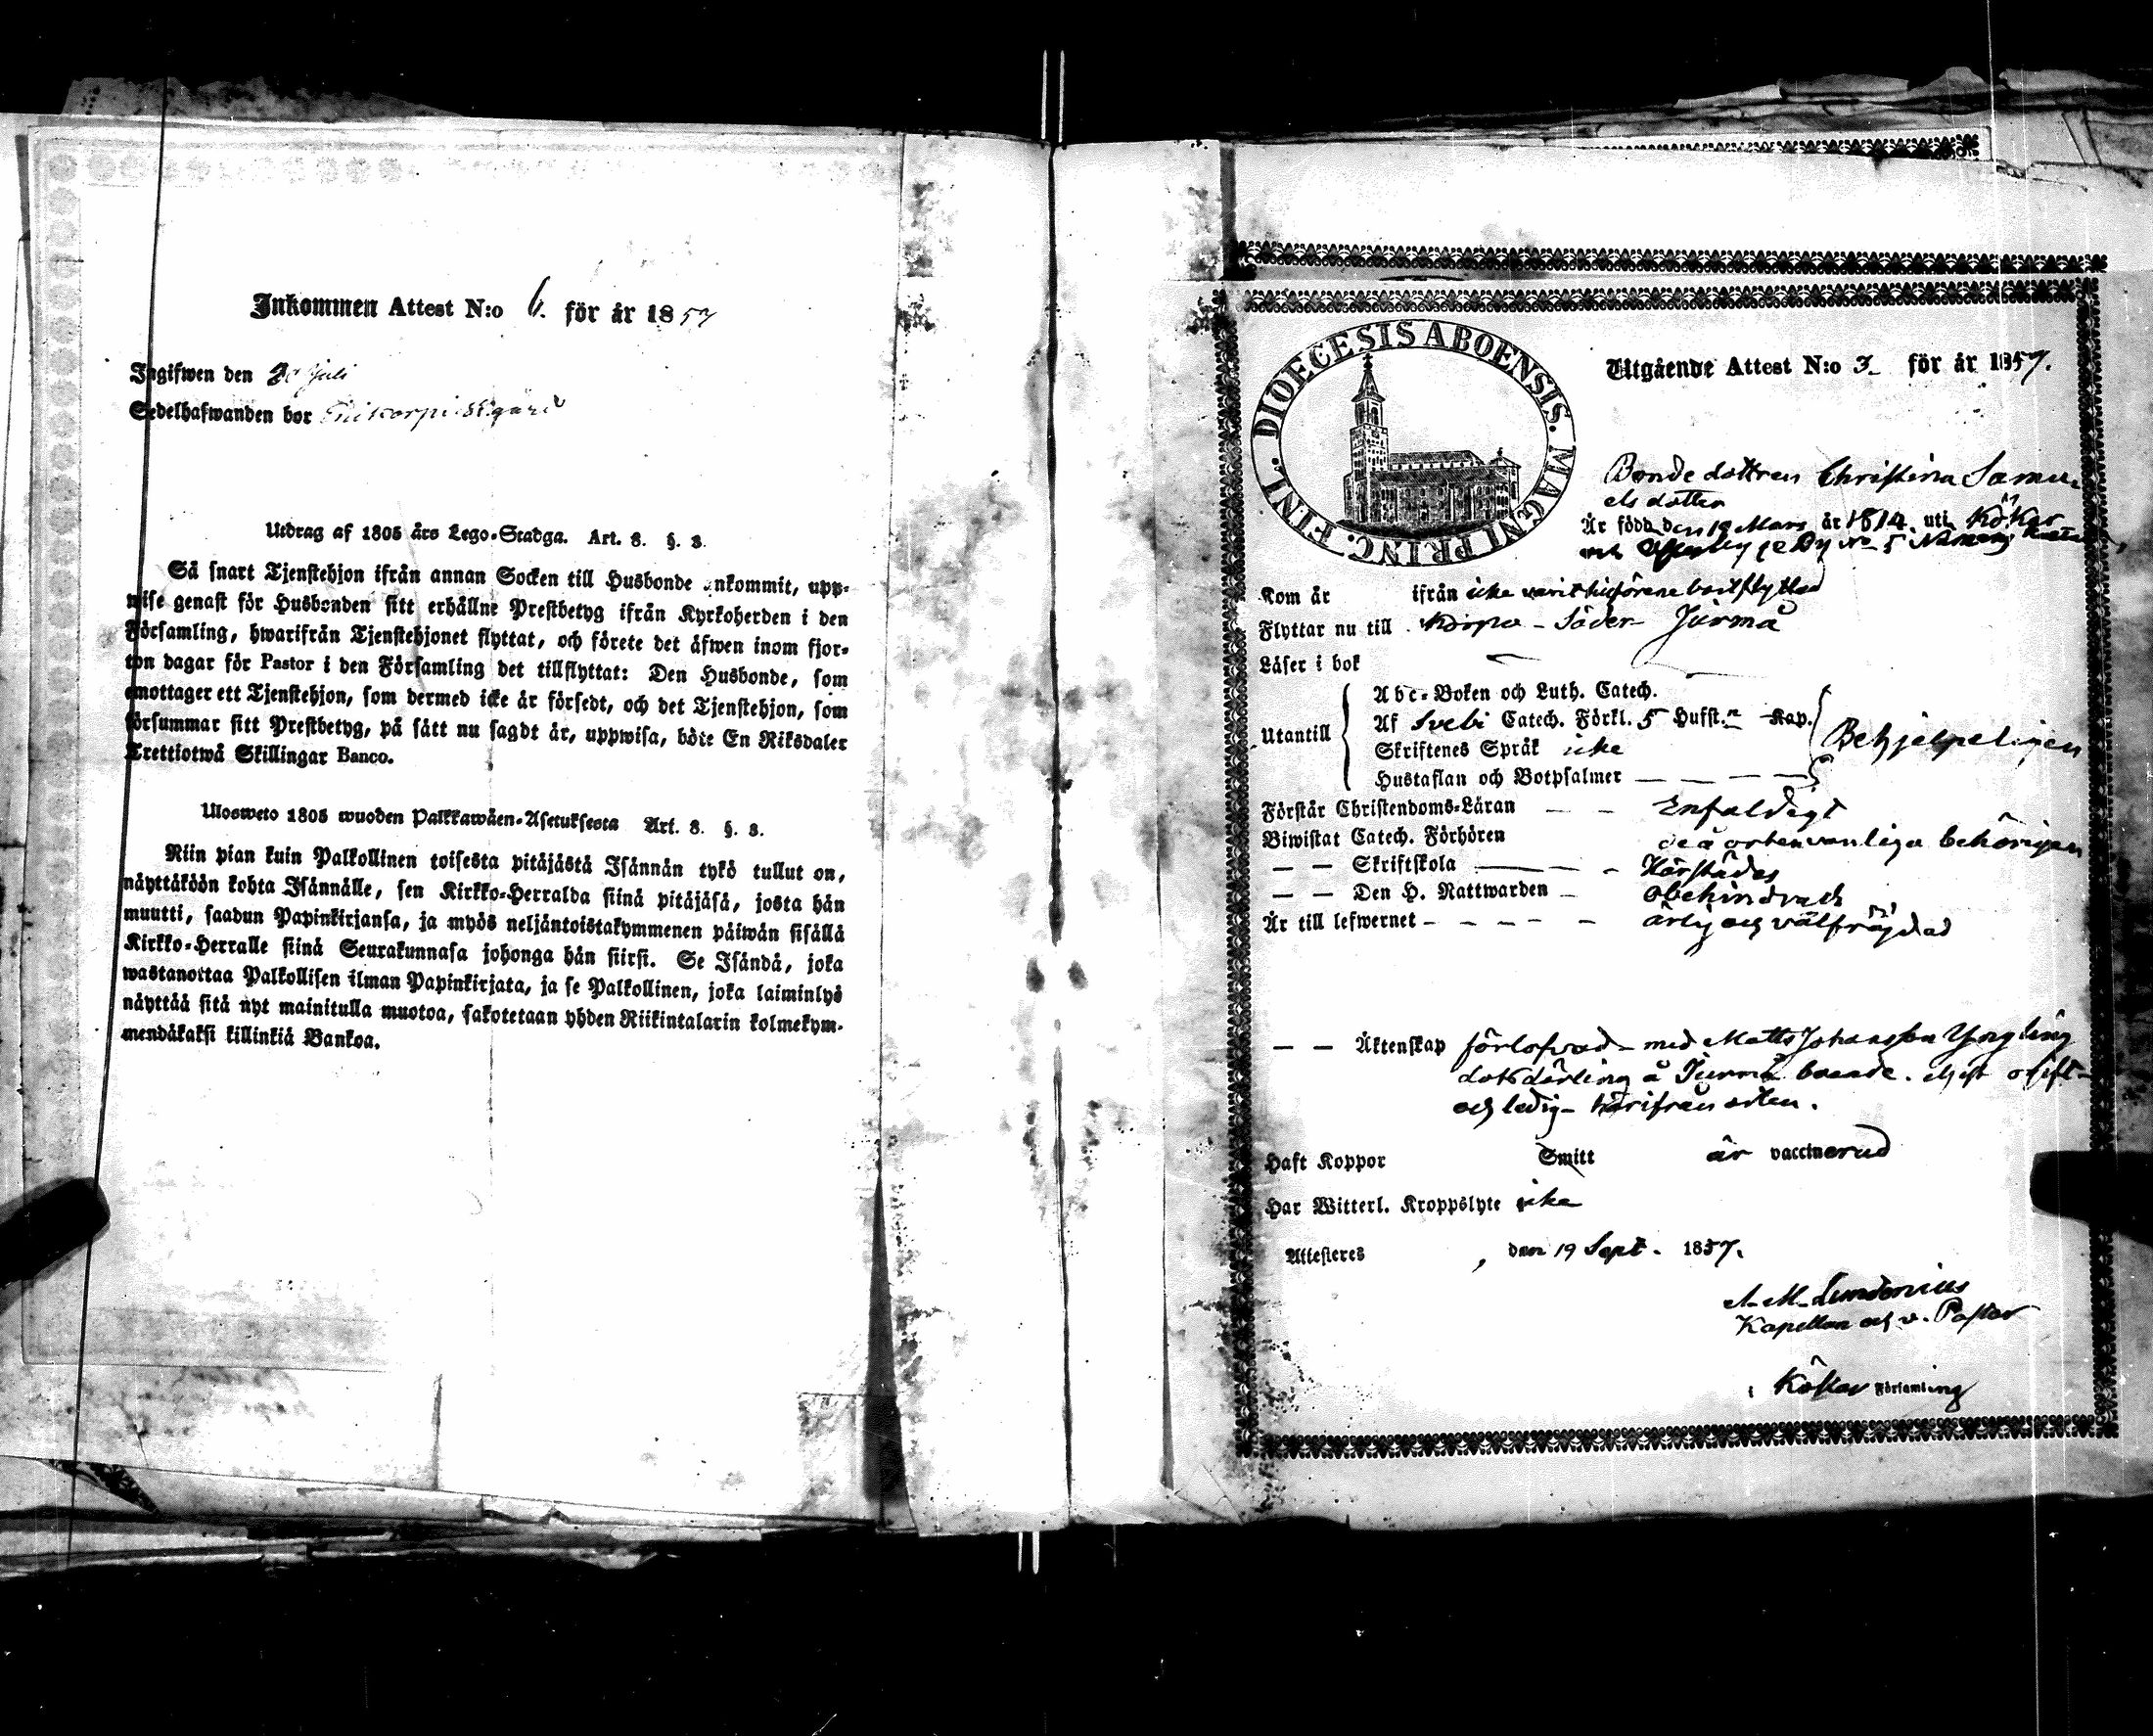 Inkommen Attest N:o 6. för år 1857
Ingifwen den 20 Juli
Sedelhafwanden bor
Utdrag af 1805 års Lego-Stadga. Art. 8. §. 3.
Så snart Tjenstehjon ifrån annan Socken till Husbonde ankommit, upp-
wise genast för Husbonden sitt erhållne Prestbetyg ifrån Kyrkoherden i den
Församling, hwarifrån Tjenstehjonet flyttat, och förete det äfwen inom fjor-
ton dagar för Pastor i den Församling det tillflyttat: Den Husbonde, som
emottager ett Tjenstehjon, som dermed icke är försedt, och det Tjenstehjon, som
försummar sitt Prestbetyg, på sätt nu sagdt är, uppwisa, böte En Riksdaler
Trettiotwå Skillingar Banco.
Ulosweto 1805 wuoden Palkkawäen-Asetuksesta Art. 8. §. 3.
Niin pian kuin Palkollinen toisesta pitäjästä Isännän tykö tullut on,
näyttäköön kohta Isännälle, sen Kirkko-Herralda siinä pitäjäsä, josta hän
muutti, saadun Papinkirjansa, ja myös neljäntoistakymmenen päiwän sisällä
Kirkko-Herralle siinä Seurakunnasa johonga hän siirsi. Se Isändä, joka
wastanottaa Palkollisen ilman Papinkirjata, ja se Palkollinen, joka laiminlyö
näyttää sitä nyt mainitulla muotoa, sakotetaan yhden Riikintalarin kolmekym-
mendäkaksi killinkiä Bankoa.
DIOECESIS ABOENSIS. MAGNI PRINC. FINL.
Utgående Attest N:o 3 för år 1857.
Bonde dottren Christina Samu-
els dotter
Är född den 18 Mars år 1814. uti Kökar
Kom år ifrån icke varit härförene bortflyttad
Flyttar nu till Korpo - Söder Jurmå
Läser i bok
Utantill
Abc-Boken och Luth. Catech.
Af Svebi Catech. Förkl. 5 Hufst. Kap.
Skriftenes Språk icke
Hustaflan och Botpsalmer
Behjelpeligen
Förstår Christendoms-Läran Enfaldigt
Biwistat Catech. Förhören de å orten vanliga behörigen
— — Skriftskola Härstädes
— — Den H. Nattwarden obehindrad
Är till lefwernet ärlig och välfräjdad
— — Äktenskap förlofvad med Matts Johansson Yngling
å Jurmo boende. ogift
och ledig härifrån orten.
Haft Koppor Smitt är vaccinerad
Har Witterl. Kroppslyte icke
Attesteres , den 19 Sept. 1857.
A. M. Lundenius
Kapellan och v. Pastor
i Kökar Församling